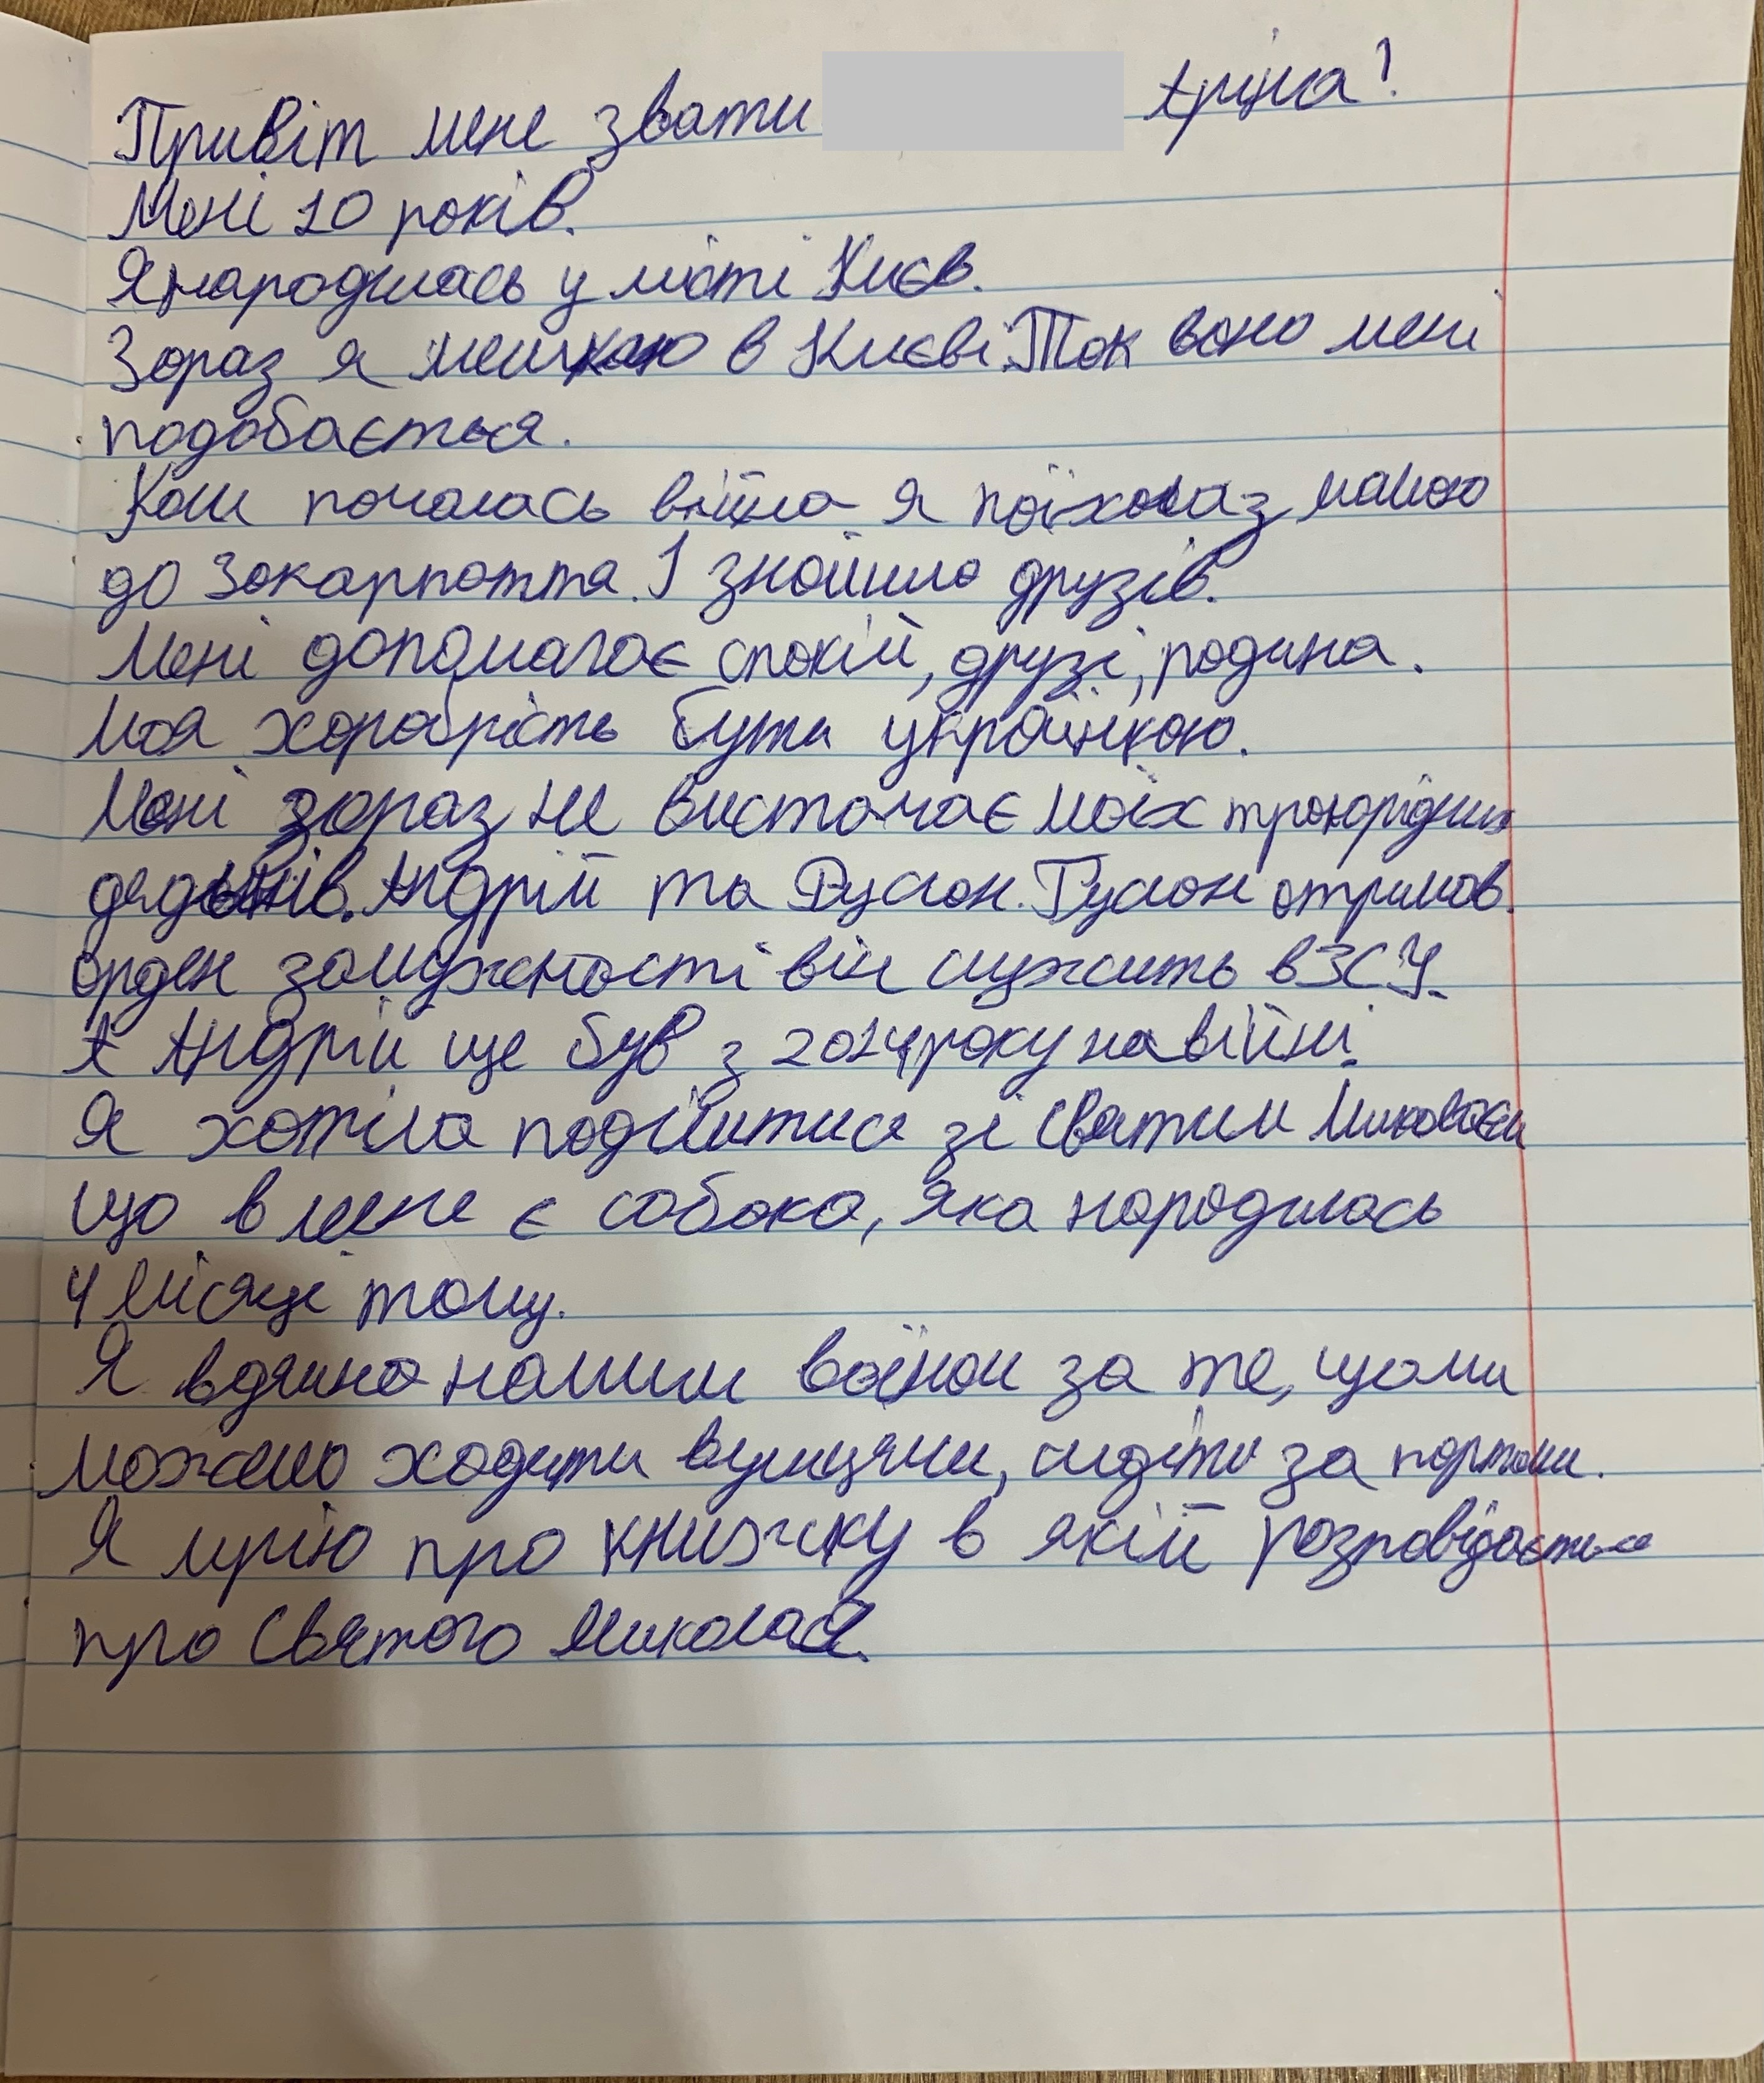 Привіт мене звати Аріна!
Мені 10 років.
Я народилась у місті Києв.
Зараз я мешкаю в Києві. Так воно мені
подобається.
Коли почалась війна я поїхала з мамою
до Закарпаття. І знайшла друзів.
Мені допомагає спокій, друзі, родина.
Моя хоробрість бути українкою.
Мені зараз не вистачає моїх троюрідних
Андрій та Руслан. Руслан отримав
орден за мужності він служить в ЗСУ.
А Андрій ще був з 2014 року на війні.
Я хотіла поділитися зі Святим Миколаєм
що в мене є собака, яка народилась
4 місяці тому.
Я вдячна нашим воїнам за те, що ми
можемо ходити вулицями, сидіти за партами.
Я мрію про книжку в якій розповідається
про Святого Миколая.